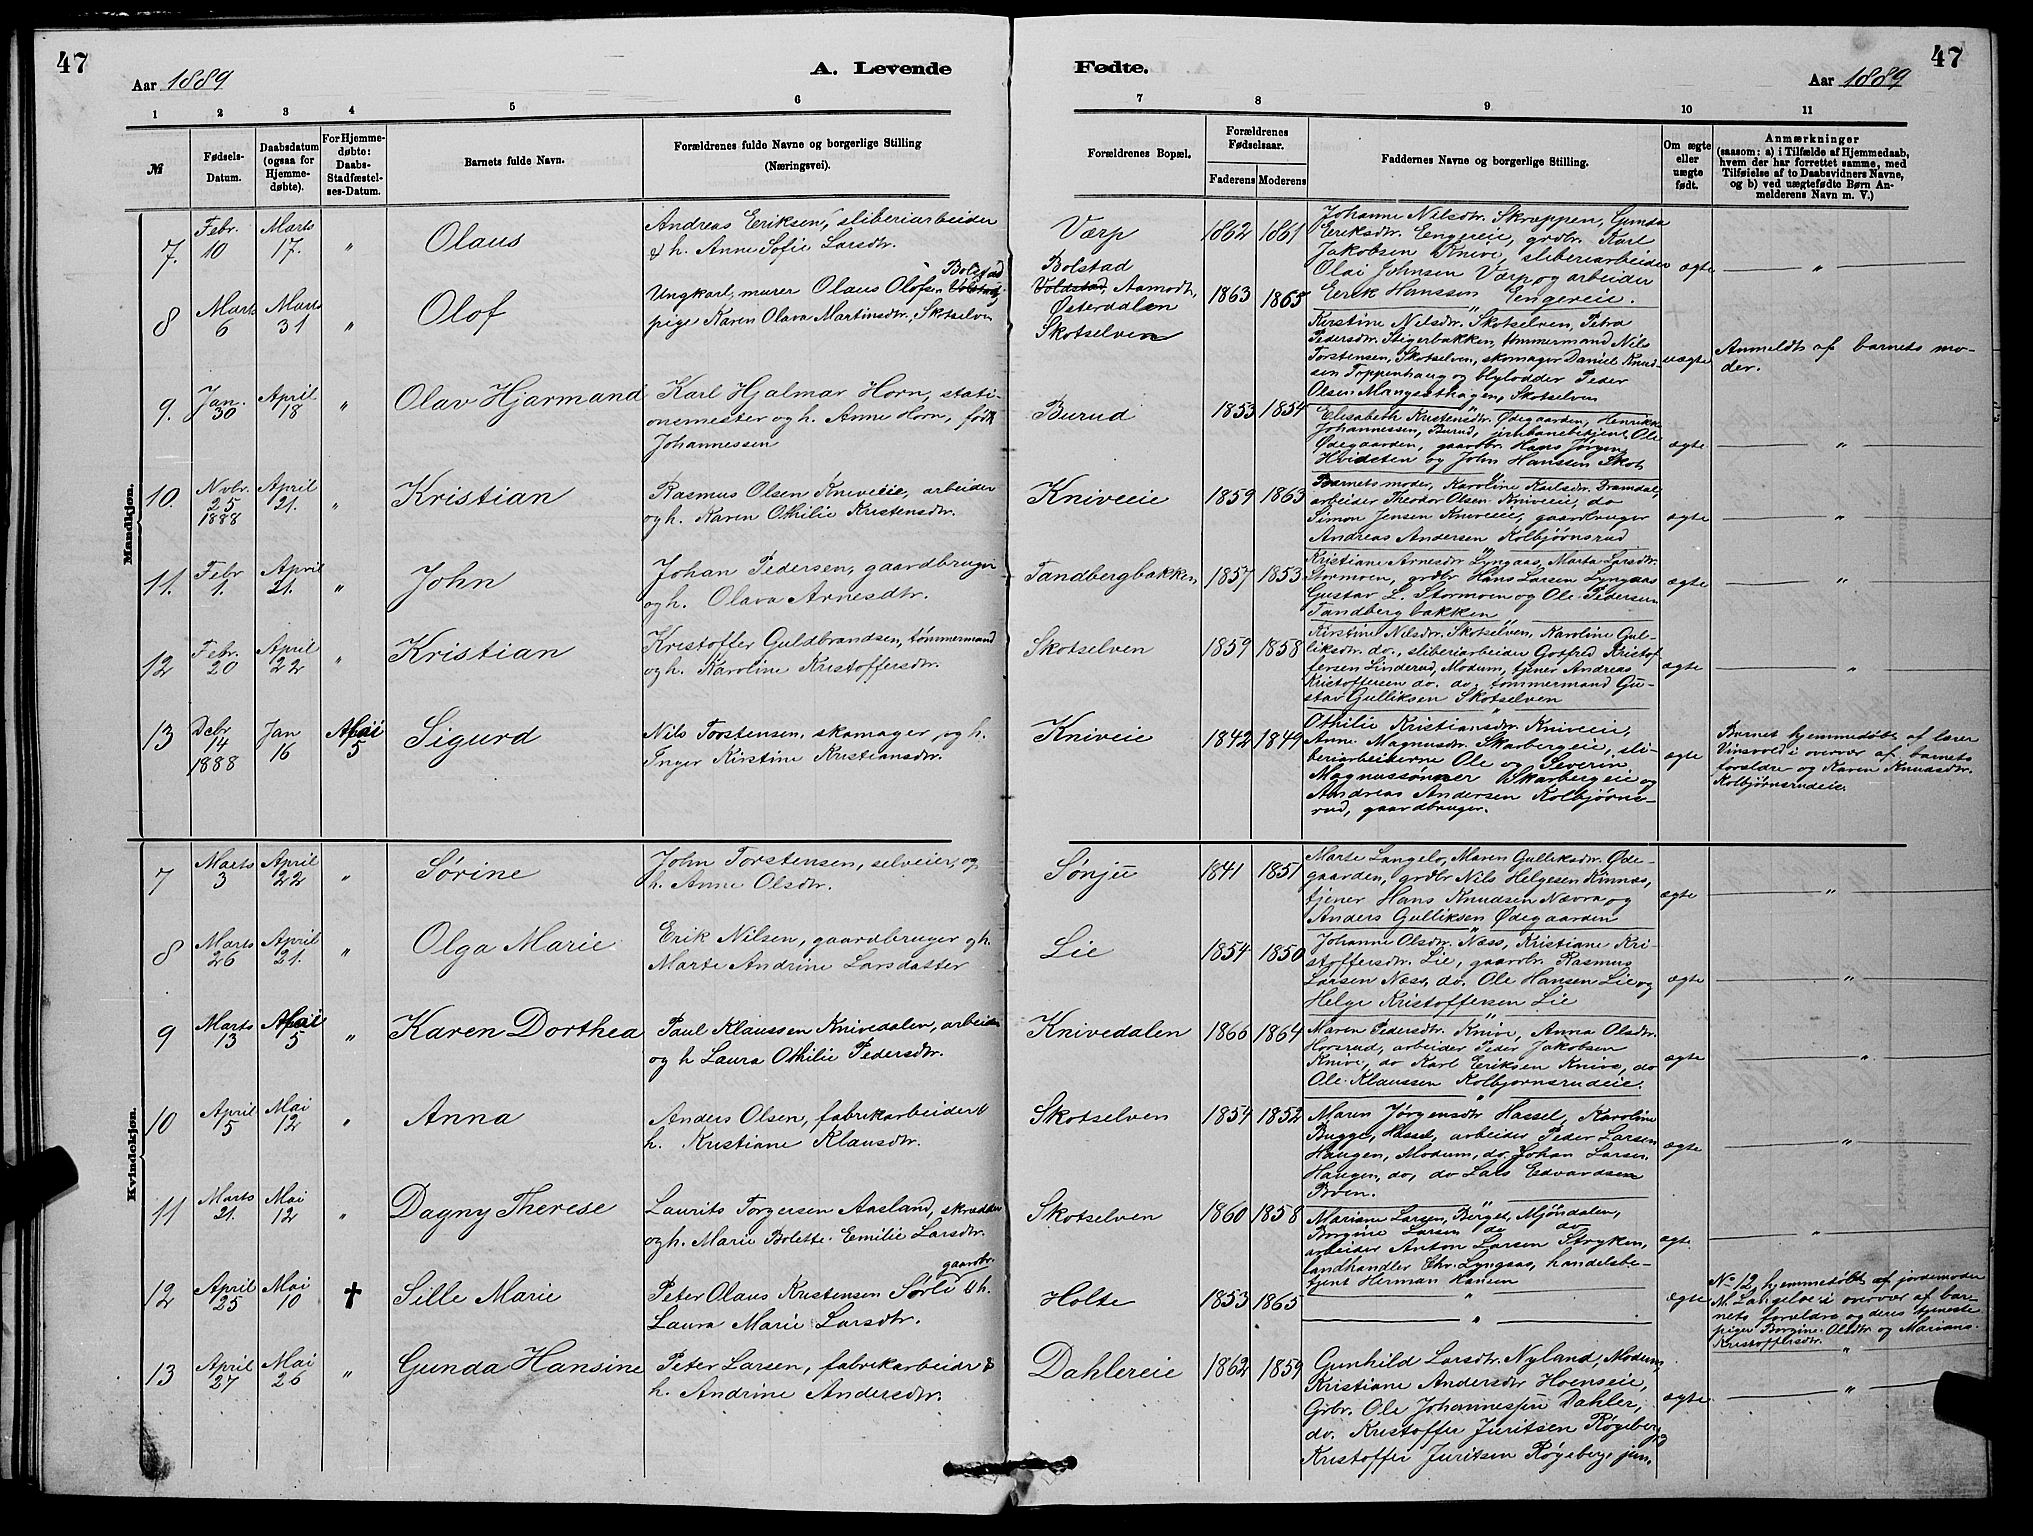 47
Aar 1889
A. Levende
1 2 3 4 5 6
№
Fødsels-
Datum.
Daabsdatum
(ogsaa for
Hjemme-
døbte).
For Hjemme-
døbte:
Daabs-
Stadfæstel-
ses-Datum.
Barnets fulde Navn.
Forældrenes fulde Navne og borgerlige Stilling
(Næringsvei).
Mandkjøn.
7. Febr. 10 Marts 17. " Olaus
Andreas Eriksen, sliberiarbeider
& h. Anne Sofie Larsdtr.
8 Marts 6 Marts 31 " Olof
Bolstad
Ungkarl, murer Olaus Olofs. Volstad
pige Karen Olava Martinsdtr. Skotselven
9. Jan. 30 April 18 " Olav Hjarmand
Karl Hjalmar Horn, stati-
onsmester og h. Anne Horn, født
Johannessen
10. Novbr. 25 1888 April 21. " Kristian
Rasmus Olsen Kniveeie, arbeider
og h. Karen Othilie Kristensdtr.
11. Febr 1. April 21. " John
Johan Pedersen, gaardbruger
og h. Olava Arnesdtr.
12 Febr. 20 April 22 " Kristian
Kristoffer Guldbrandsen, tømmermand
og h. Karoline Kristoffersdtr.
13 Debr 14 1888 Jan 16 Mai 5 Sigurd
Nils Torstensen, skomager, og h.
Inger Kirstine Kristiansdtr.
Kvindekjøn.
7 Marts 3 April 22 " Sørine
John Torstensen, selveier, og
h. Anne Olsdtr.
8 Marts 26 April 21. " Olga Marie
Erik Nilsen, gaardbruger og h.
Marte Andrine Larsdatter
9 Marts 13 Mai 5 " Karen Dorthea
Paul Klaussen Knivedalen, arbeider
og h Laura Othilie Pedersdtr.
10 April 5 Mai 12 " Anna
Anders Olsen, fabrikarbeider &
h. Kristiane Klausdtr.
11 Marts 21. Mai 12 " Dagny Therese
Laurits Torgersen Aasland, skrædder
og h. Marie Bolette Emilie Larsdtr.
gaardbr.
12 April 25 Mai 10 † Sille Marie
Peter Olaus Kristensen Sørli & h.
Laura Marie Larsdtr.
13 April 27 Mai 26 " Gunda Hansine
Peter Larsen, fabrikarbeider &
h. Andrine Andersdtr.
47
Fødte.
Aar 1889
7 8 9 10 11
Forældrenes Bopæl.
Forældrenes
Fødselsaar.
Faderens Moderens
Faddernes Navne og borgerlige Stilling.
Om ægte
eller
uægte
født.
Anmærkninger
(saasom: a) i Tilfælde af Hjemmedaab,
hvem der har forrettet samme, med
Tilføielse af to Daabsvidners Navne,
og b) ved uægtefødte Børn An-
melderens Navn m. V.)
Værp 1862 1861
Johanne Nilsdtr. Skræppen, Gunda
Eriksdtr. Engereie, grdbr. Karl
Jakobsen Knive, sliberiarbeider
Olai Johnsen Værp og arbeider
Eerik Hanssen Engereie.
ægte "
Bolstad
Voldstad, Aamodt,
Østerdalen
Skotselven
1863 1863
Kirstine Nilsdtr. Skotselven, Petra
Pedersdtr. Stigerbakken, tømmermand Nils
Torstensen, Skotselven, skomager Daniel Knud-
sen Toppenhaug og blylodder Peder
Olsen Mangsethagen, Skotselven
uægte
Anmeldt af barnets mo-
der.
Burud 1853 1854
Elisabeth Kristensdtr. Ødegaarden, Henrikke
Johannessen, Burud, jernbanebetjent Ole
Ødegaarden, gaardbr. Hans Jørgen
Hvidsten og John Hanssen Skot
ægte "
Kniveeie 1859 1863
Barnets moder, Karoline Karlsdtr. Bramdal,
arbeider Theodor Olsen Kniveeie, do
Simon Jensen Kniveeie, gaardbruger
Andreas Andersen Kolbjørnsrud
ægte "
Tandbergbakken 1857 1853
Kristiane Arnesdtr Lyngaas, Marta Larsdtr.
Stormoen, grdbr Hans Larsen Lyngaas
Gustav L. Stormoen og Ole Pedersen
Tandbergbakken
ægte "
Skotselven 1859 1858
Kirstine Nilsdtr. Skotselven, Karoline Gul-
liksdtr. do., sliberiarbeider Gotfred Kristof-
fersen Linderud, Modum, tjener Andreas
Kristoffersen do. do. tømmermand Gu-
stav Gulliksen Skotselven
ægte "
Kniveeie 1842 1849
Othilie Kristiansdtr. Kniveeie,
Anne Magnusdtr. Skarbergeie, sli-
beriarbeiderne Ole og Severin
Magnussønner Skarbergeie og
Andreas Andersen Kolbjørns-
rud, gaardbruger.
ægte
Barnet hjemmedøbt af lærer
Vinsvold i overvær af barnets
forældre og Karen Knudsdtr.
Kolbjørnsrudeie.
Sønju 1841 1851
Marte Langelo, Maren Gulliksdtr. Øde-
gaarden, grdbr Nils Helgesen Kinnas,
tjener Hans Knudsen Nævra og
Anders Gulliksen Ødegaarden
ægte "
Lie 1854 1850
Johanne Olsdtr. Næss, Kristiane Kri-
stoffersdtr. Lie, gaardbr. Rasmus
Larsen Næss, do. Ole Hansen Lie og
Helge Kristoffersen Lie
ægte "
Knivedalen 1866 1864
Maren Pedersdtr. Knive, Anna Olsdtr.
Horsrud, arbeider Peder Jakobsen
Knive, do Karl Eriksen Knive, do
Ole Klaussen Kolbjørnsrudeie.
ægte "
Skotselven 1854 1852
Maren Jørgensdtr Hassel, Karoline
Bugge, Hassel, arbeider Peder Larsen
Haugen, Modum, do. Johan Larsen
Haugen, do, do Lars Edvardsen
Broen.
ægte "
Skotselven 1860 1858
Mariane Larsen, Berget, Mjøndalen,
Borgine Larsen do do
arbeider Anton Larsen Stryken,
landhandler Chr. Lyngaas, handelsbe-
tjent Herman Hansen
ægte "
Holte 1853 1865
"
ægte
No 12, hjemmedøbt af jordemoder
M. Langeloe i overvær af bar-
nets forældre og deres tjeneste-
piger Borgine Olsdtr og Mariane
Kristoffersdtr.
Dahlereie 1862 1859
Gunhild Larsdtr. Nyland, Modum,
Kristiane Andersdtr Hoenseie,
Grbr. Ole Johannessen Dahler,
do. Kristoffer Juritsen Røgeberg
Kristoffer Juritsen Røgeberg jun.
ægte "